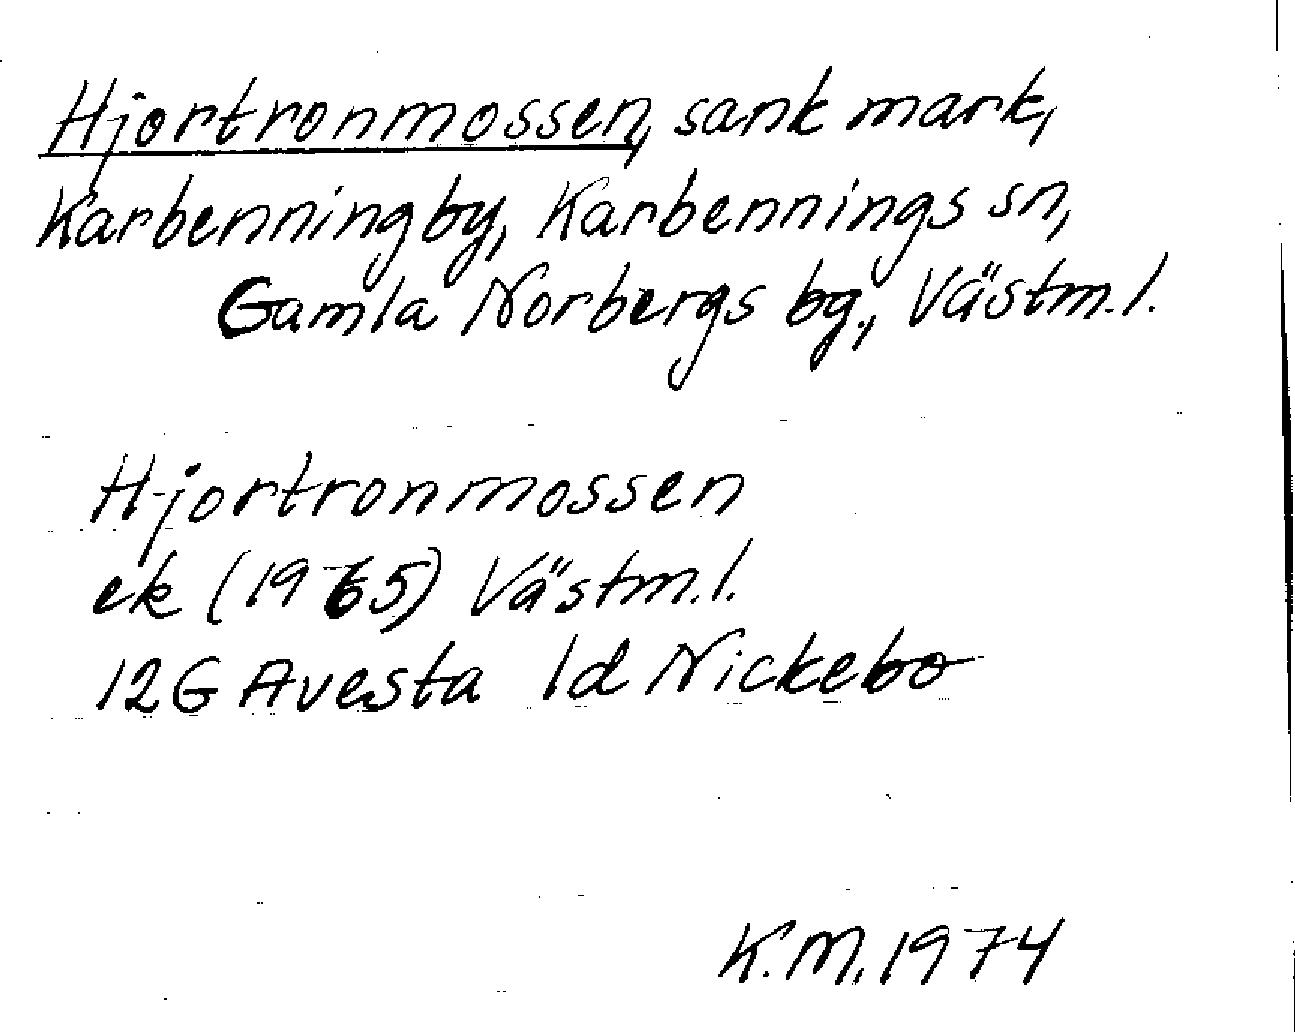 Hjortronmossen, sank mark,
Karbenning by, Karbennings sn,
Gamla Norbergs bg., Västm. l.
Hjortronmossen
ek (1965) Västm. l.
12G Avesta 1d Nickebo
K.M. 1974